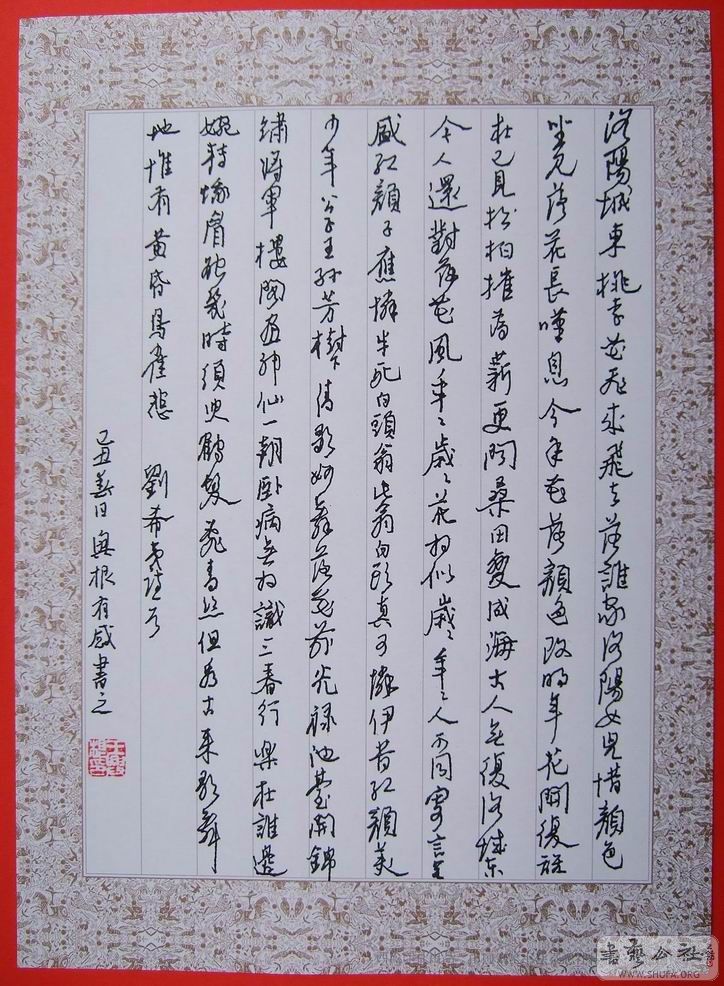 洛陽城東桃李花飛來飛去落誰家洛陽女兒惜顏色
坐見落花長嘆息今年花落顏色改明年花開復誰
在已見松柏摧為薪更聞桑田變成海古人無復洛城東
今人還對落花風年々歲々花相似歲々年々人不同寄言全
盛紅顏子應憐半死白頭翁此翁白頭真可憐伊昔紅顏美
少年公子王孫芳樹下清歌妙舞落花前光祿池臺開錦
繡將軍樓閣畫神仙一朝臥病無相識三春行樂在誰邊
婉轉蛾眉能幾時須臾鶴髮亂青絲但看古來歌舞
地惟有黃昏鳥雀悲 劉希夷詩
己丑春日與根有感書之
書藝公社
WWW.SHUFA.ORG